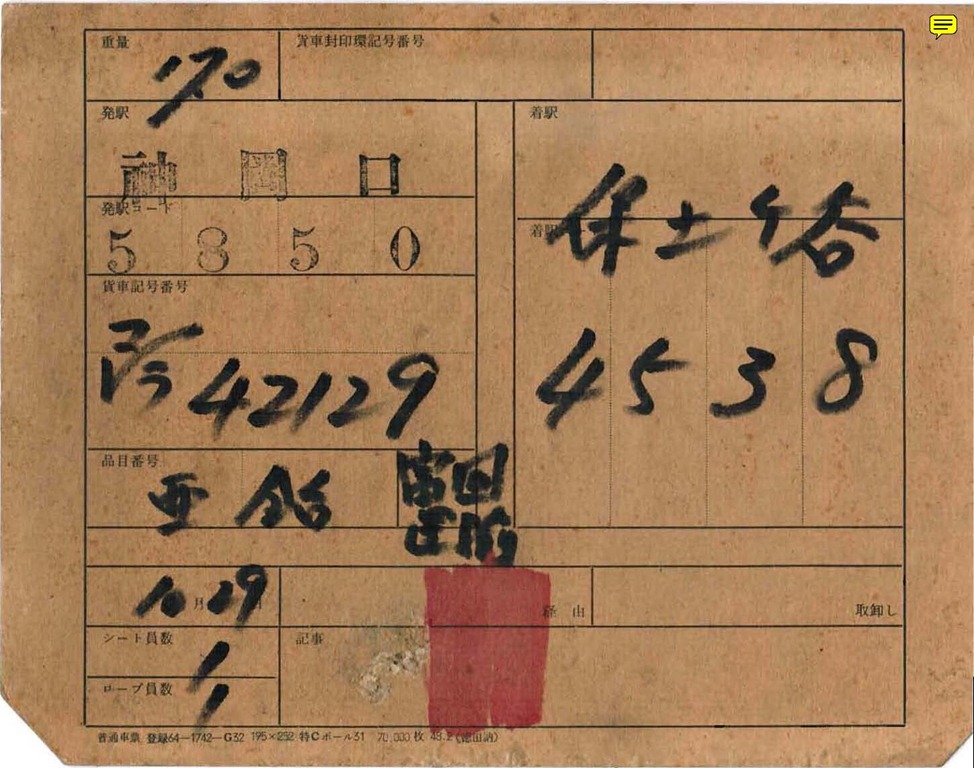 重量
貨車封印環記号番号
170
発駅
着駅
神岡口
保土ヶ谷
発駅コード
5850
貨車記号番号
42129
4538
品目番号
亜鉛
富田
10月29日
経由
取卸し
シート員数
1
記事
ロープ員数
1
普通車票 登録64-1742-G32 195×252 特Cボール31 70,000枚 48.2